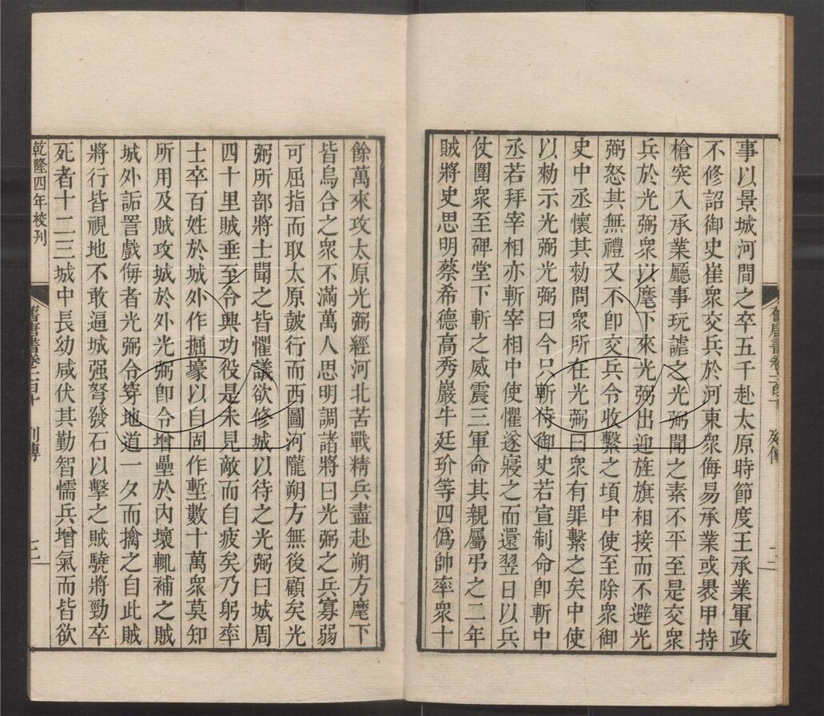 事以景城河間之卒五千赴太原時節度王承業軍政
不修詔御史崔衆交兵於河東衆侮易承業或裹甲持
槍突入承業廳事玩謔之光弼聞之素不平至是交衆
兵於光弼衆以麾下來光弼出迎旌旗相接而不避光
弼怒其無禮又不卽交兵令收繫之頃中使至除衆御
史中丞懷其勑問衆所在光弼曰衆有罪繫之矣中使
以勑示光弼光弼曰今只斬侍御史若宣制命卽斬中
丞若拜宰相亦斬宰相中使懼遂寢之而還翌日以兵
仗圍衆至碑堂下斬之威震三軍命其親屬弔之二年
賊將史思明蔡希德高秀巖牛廷玠等四僞帥率衆十
餘萬來攻太原光弼經河北苦戰精兵盡赴朔方麾下
皆烏合之衆不滿萬人思明謂諸將曰光弼之兵寡弱
可屈指而取太原鼓行而西圖河隴朔方無後顧矣光
弼所部將士聞之皆懼議欲修城以待之光弼曰城周
四十里賊垂至今興功役是未見敵而自疲矣乃躬率
士卒百姓於城外作掘壕以自固作塹數十萬衆莫知
所用及賊攻城於外光弼卽令增壘於內壞輒補之賊
城外詬詈戲侮者光弼令穿地道一夕而擒之自此賊
將行皆視地不敢逼城强弩發石以擊之賊驍將勁卒
死者十二三城中長幼咸伏其勤智懦兵增氣而皆欲
乾隆四年校刊